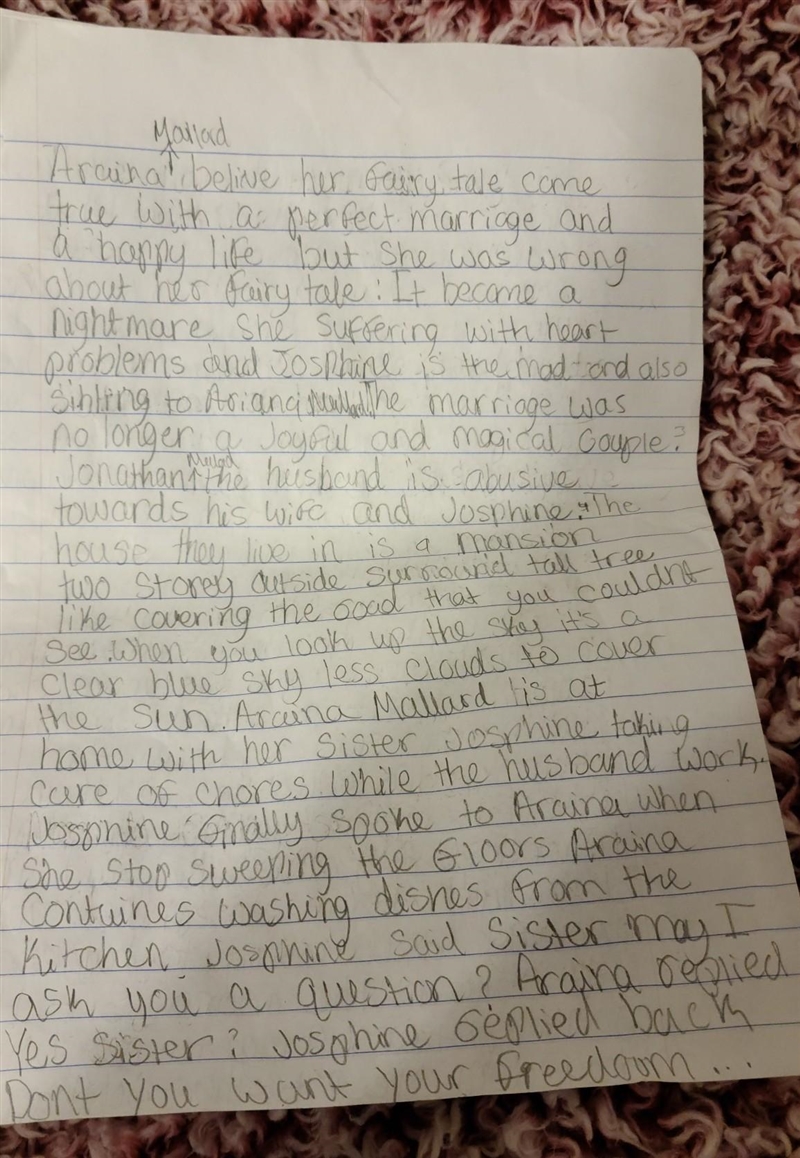 Mallad
Araina belive her fairy tale come
true with a perfect marriage and
a happy life but she was wrong
about her fairy tale: It become a
nightmare she suffering with heart
problems and Josphine is the mad and also
sibling to Ariana The marriage was
no longer a joyful and magical couple?
Mallad
Jonathan the husband is abusive
towards his wife and Josphine. The
house they live in is a mansion
two storey outside surround tall tree
like covering the road that you couldnt
see. when you look up the sky it's a
clear blue sky less clouds to cover
the sun. Araina Mallard is at
home with her sister Josphine taking
care of chores while the husband work.
Josphine finally spoke to Araina when
she stop sweeping the floors Araina
Contuines washing dishes from the
kitchen Josphine said sister may I
ask you a question? Araina replied
Yes sister? Josphine replied back
Dont you want your freedoom...